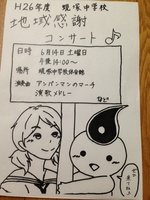 H26年度 現塚中学校
地域感謝
コンサート
日時 6月14日 土曜日
午後 14:00～
場所 現塚中学校体育館
演奏曲 アンパンマンのマーチ
演歌メドレー
など